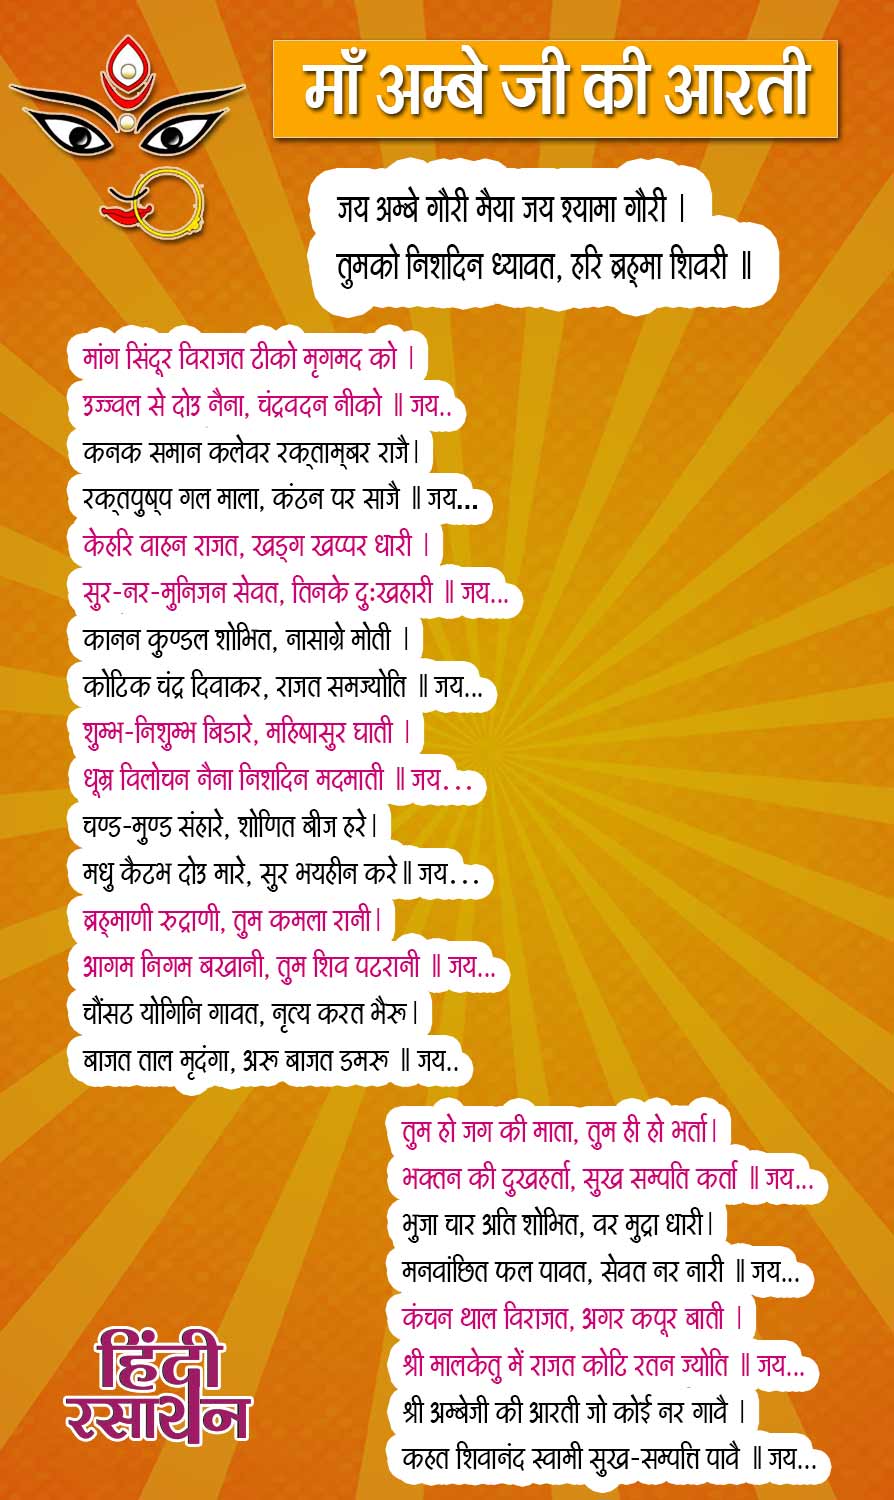 माँ अम्बे जी की आरती
जय अम्बे गौरी मैया जय श्यामा गौरी |
तुमको निशदिन ध्यावत, हरि ब्रह्मा शिवरी ॥
मांग सिंदूर विराजत टीको मृगमद को |
उज्ज्वल से दोउ नैना, चंद्रवदन नीको ॥ जय..
कनक समान कलेवर रक्ताम्बर राजै|
रक्तपुष्प गल माला, कंठन पर साजै ॥ जय...
केहरि वाहन राजत, खड्ग खप्पर धारी |
सुर-नर-मुनिजन सेवत, तिनके दुःखहारी ॥ जय...
कानन कुण्डल शोभित, नासाग्रे मोती |
कोटिक चंद्र दिवाकर, राजत समज्योति ॥ जय...
शुम्भ-निशुम्भ बिडारे, महिषासुर घाती |
धूम्र विलोचन नैना निशदिन मदमाती ॥ जय...
चण्ड-मुण्ड संहारे, शोणित बीज हरे|
मधु कैटभ दोउ मारे, सुर भयहीन करे॥ जय...
ब्रह्माणी रुद्राणी, तुम कमला रानी|
आगम निगम बखानी, तुम शिव पटरानी ॥ जय...
चौंसठ योगिनि गावत, नृत्य करत भैरू|
बाजत ताल मृदंगा, अरू बाजत डमरू ॥ जय..
तुम हो जग की माता, तुम ही हो भर्ता|
भक्तन की दुखहर्ता, सुख सम्पति कर्ता ॥ जय...
भुजा चार अति शोभित, वर मुद्रा धारी|
मनवांछित फल पावत, सेवत नर नारी ॥ जय...
कंचन थाल विराजत, अगर कपूर बाती |
श्री मालकेतु में राजत कोटि रतन ज्योति ॥ जय...
श्री अम्बेजी की आरती जो कोई नर गावै |
कहत शिवानंद स्वामी सुख-सम्पत्ति पावै ॥ जय...
हिंदी
रसायन